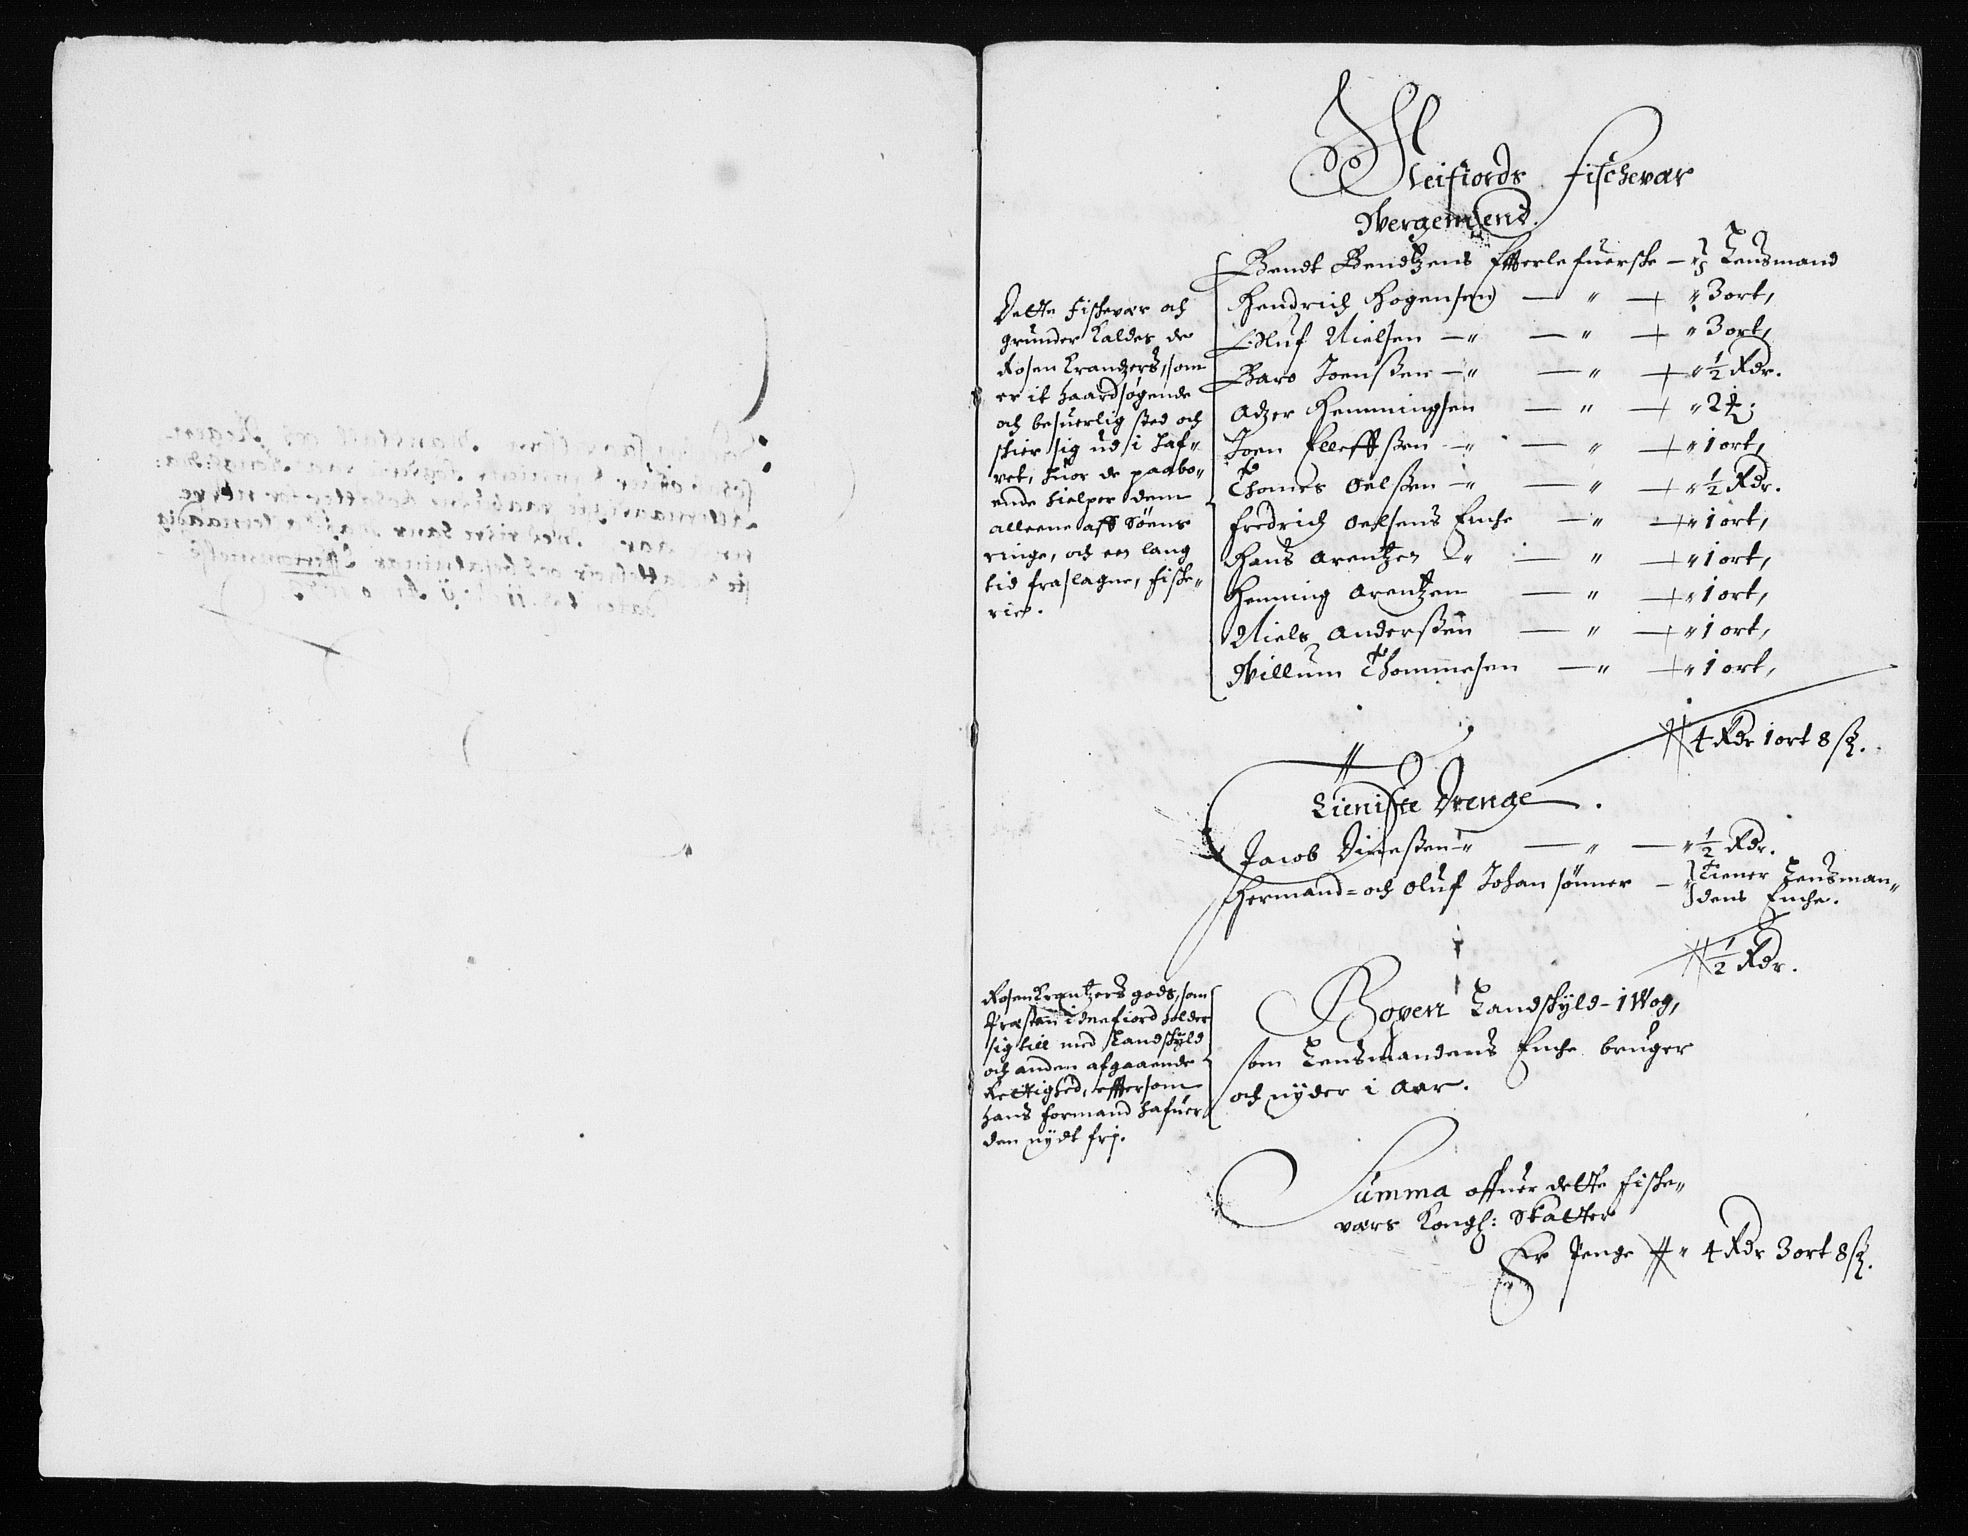 Kleifiords Fischevær
Wergemend.
Bendt Bendtzens Effterlefuerske — Lensmand
Hendrich Hogensen — " — " 3 ort,
Oluf Nielsen — " — " — " 3 ort,
Baro Joenssen — " — " — " ½ Rdr.
Adzer Hemmingsen — " — "
Joen Elleffssen — " — " — " 1 ort,
Thomes Oelssen — " — " — " ½ Rdr.
Fredrich Oelsens Enche — " — " 1 ort,
Hans Arentzen — " — " — " 1 ort,
Henning Arentzen — " — " 1 ort,
Niels Anderssen — " — " 1 ort,
Willum Thommesen — " — " 1 ort,
4 Rdr 1 ort 8 sk.
Dette fischevær och
grunder kaldes de
Rosenkrandzers, som
er it haardsøgende
och besuerlig sted och
skier sig ud i haf-
vet, huor de paabo-
ende hielper dem
alleene aff Søens
ringe, och een lang
tid fraslagne, fiske-
rie.
Tieniste Drenge.
Jacob — " — " — " ½ Rdr.
Hermand= och Oluf Johansønner — " Tiener Lensman-
dens Enche.
½ Rdr.
Rosenkrantzers gods, som
Præsten i holder
sig till med Landskyld
och anden afgaaende
Rettighed, effersom
hans formand hafuer
den nydt frj.
Bopen Landskyld - 1 Wog,
som Lensmandens Enche bruger
och nyder i Aar.
Summa offuer dette fiske-
værs Kongl: Skatter
Er Penge " 4 Rdr 3 ort 8 sk.